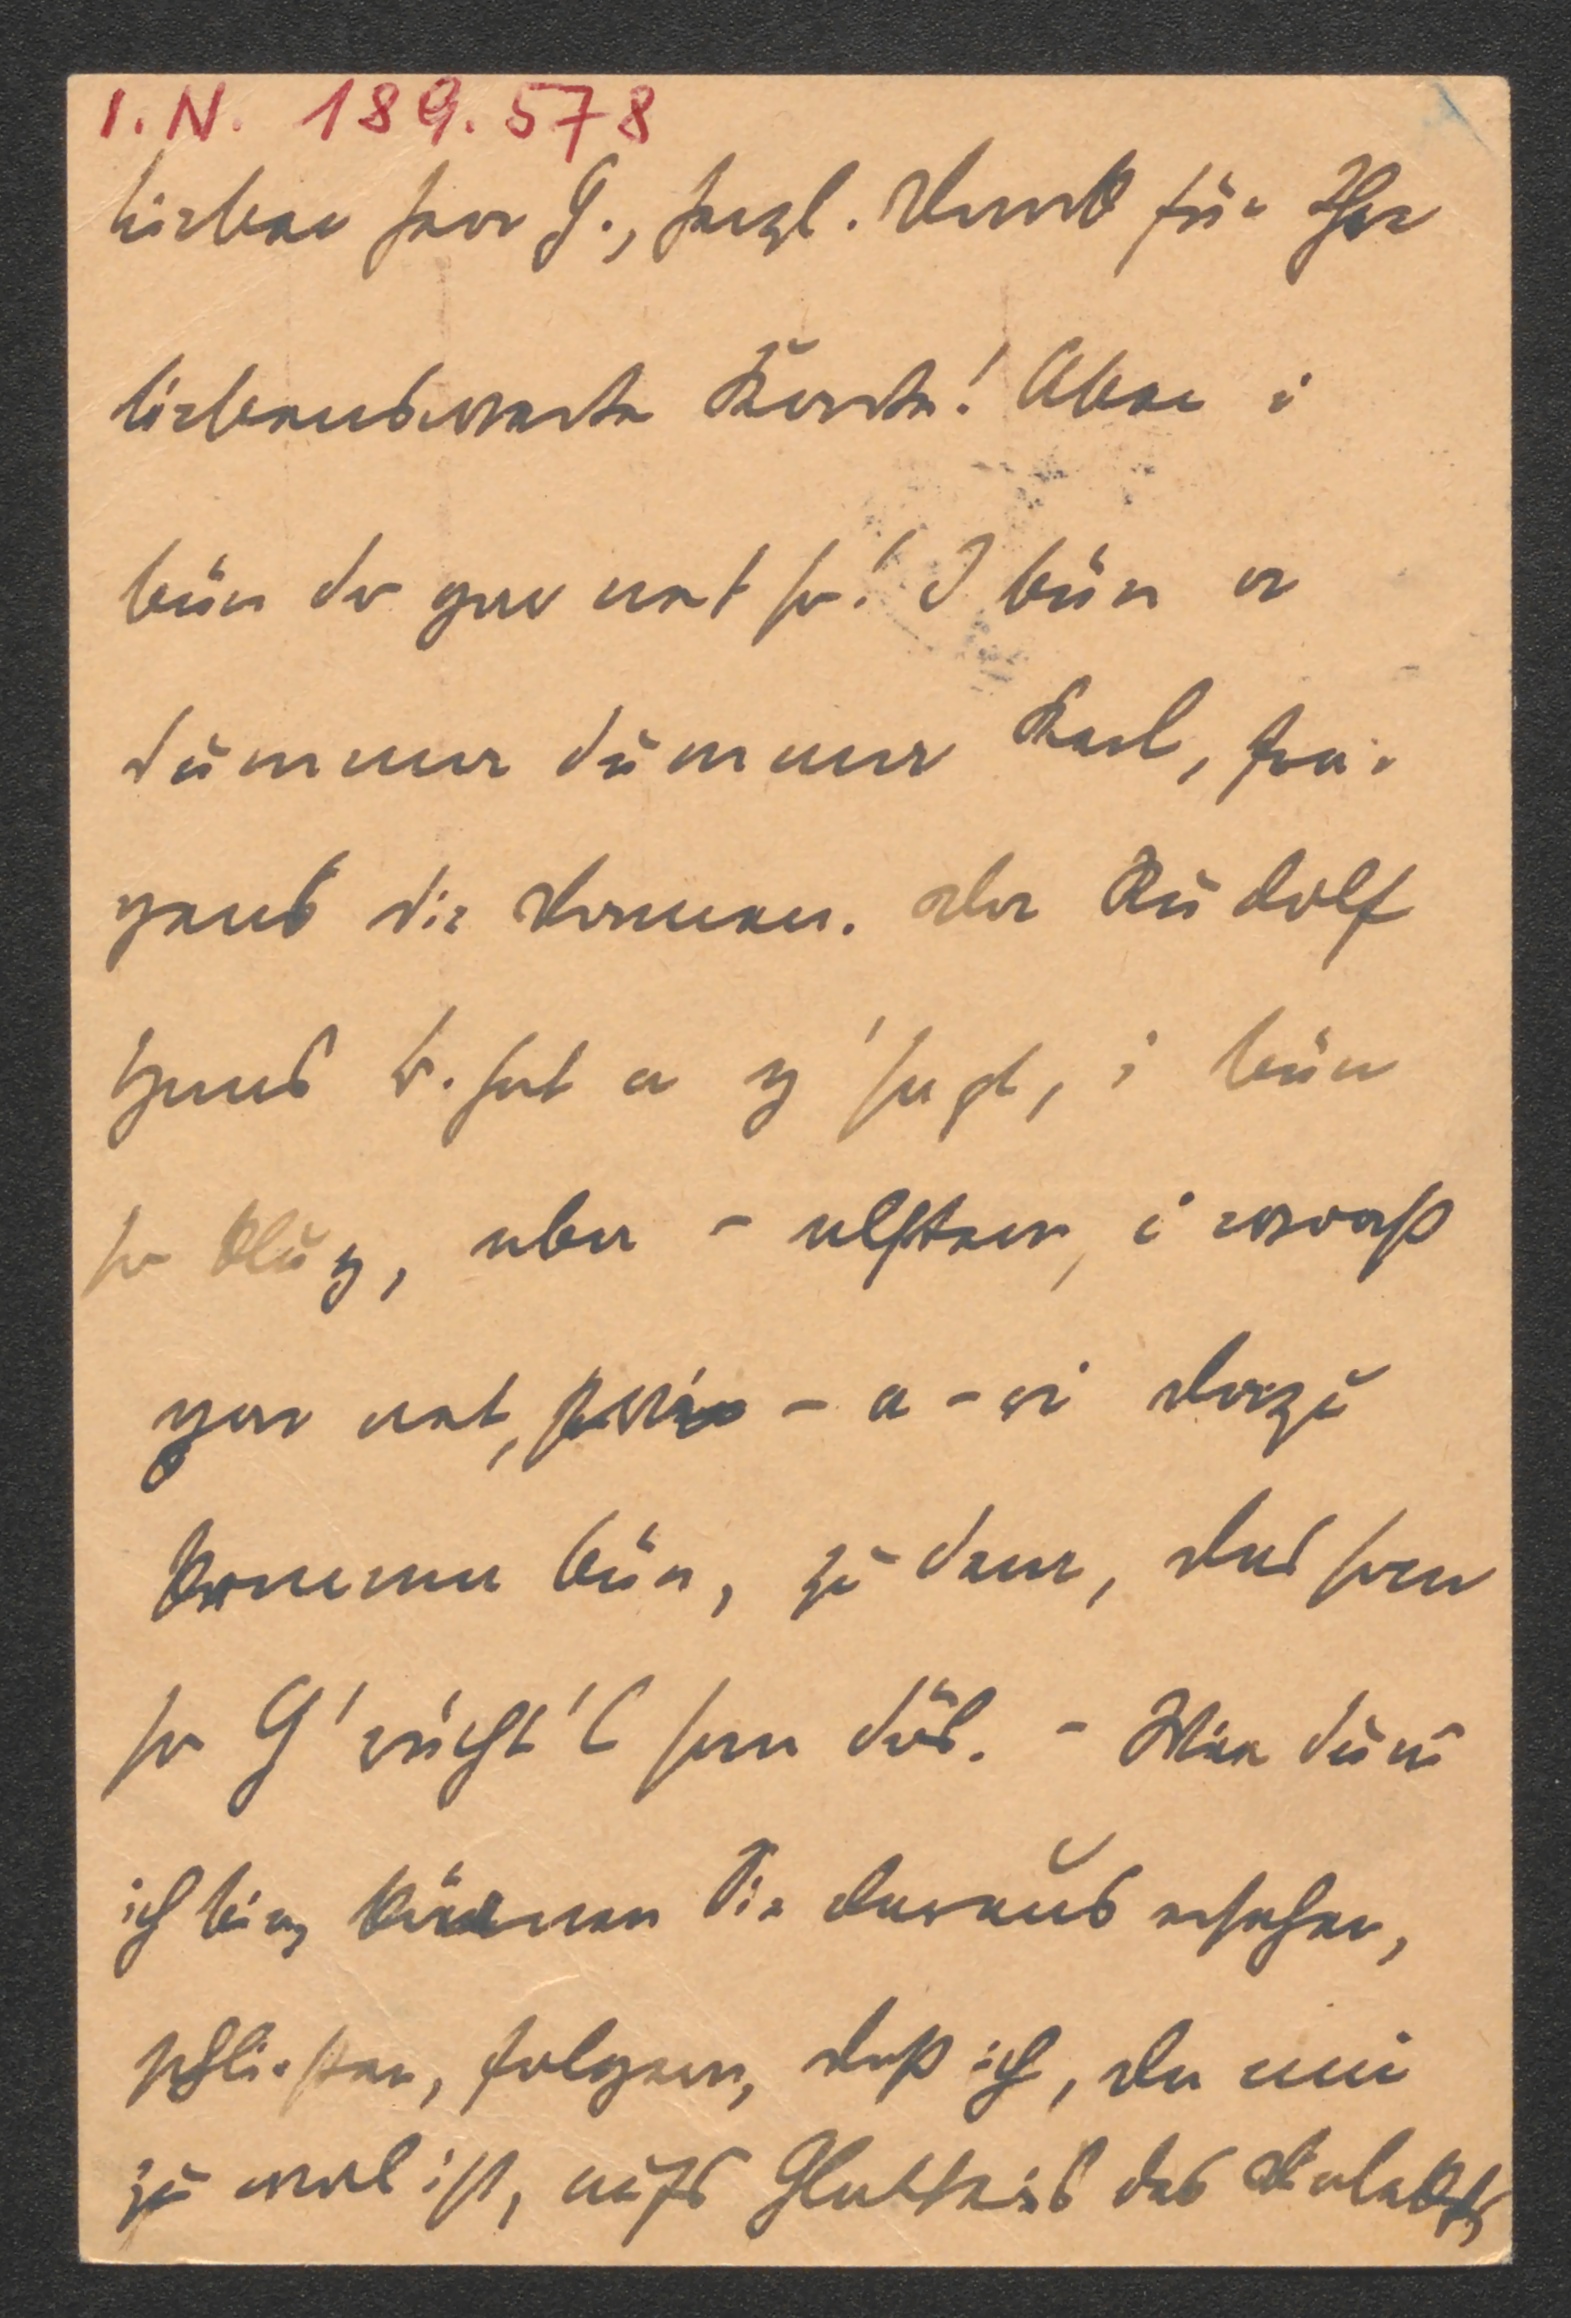 I.N. 189.578
Lieber Herr G., herzl. Dank für Ihre
liebenswerte Karte! Aber i
bün do gar net so! I bün a
dummer dummer Kerl, fra-
gens die Damen. Der Rudolf
Hans B. hat a g'sagt, i bün
so klug, aber - alstern, i waaß
gar net, wia - a - i dazu
kommen bün, zu dem, das son
so G'schicht'l san dös. - Wie dum
ich bin, können Sie daraus ersehen,
schließen, folgern, daß ich, da mir
zu wol ist, aufs Glatteis des Dialekts